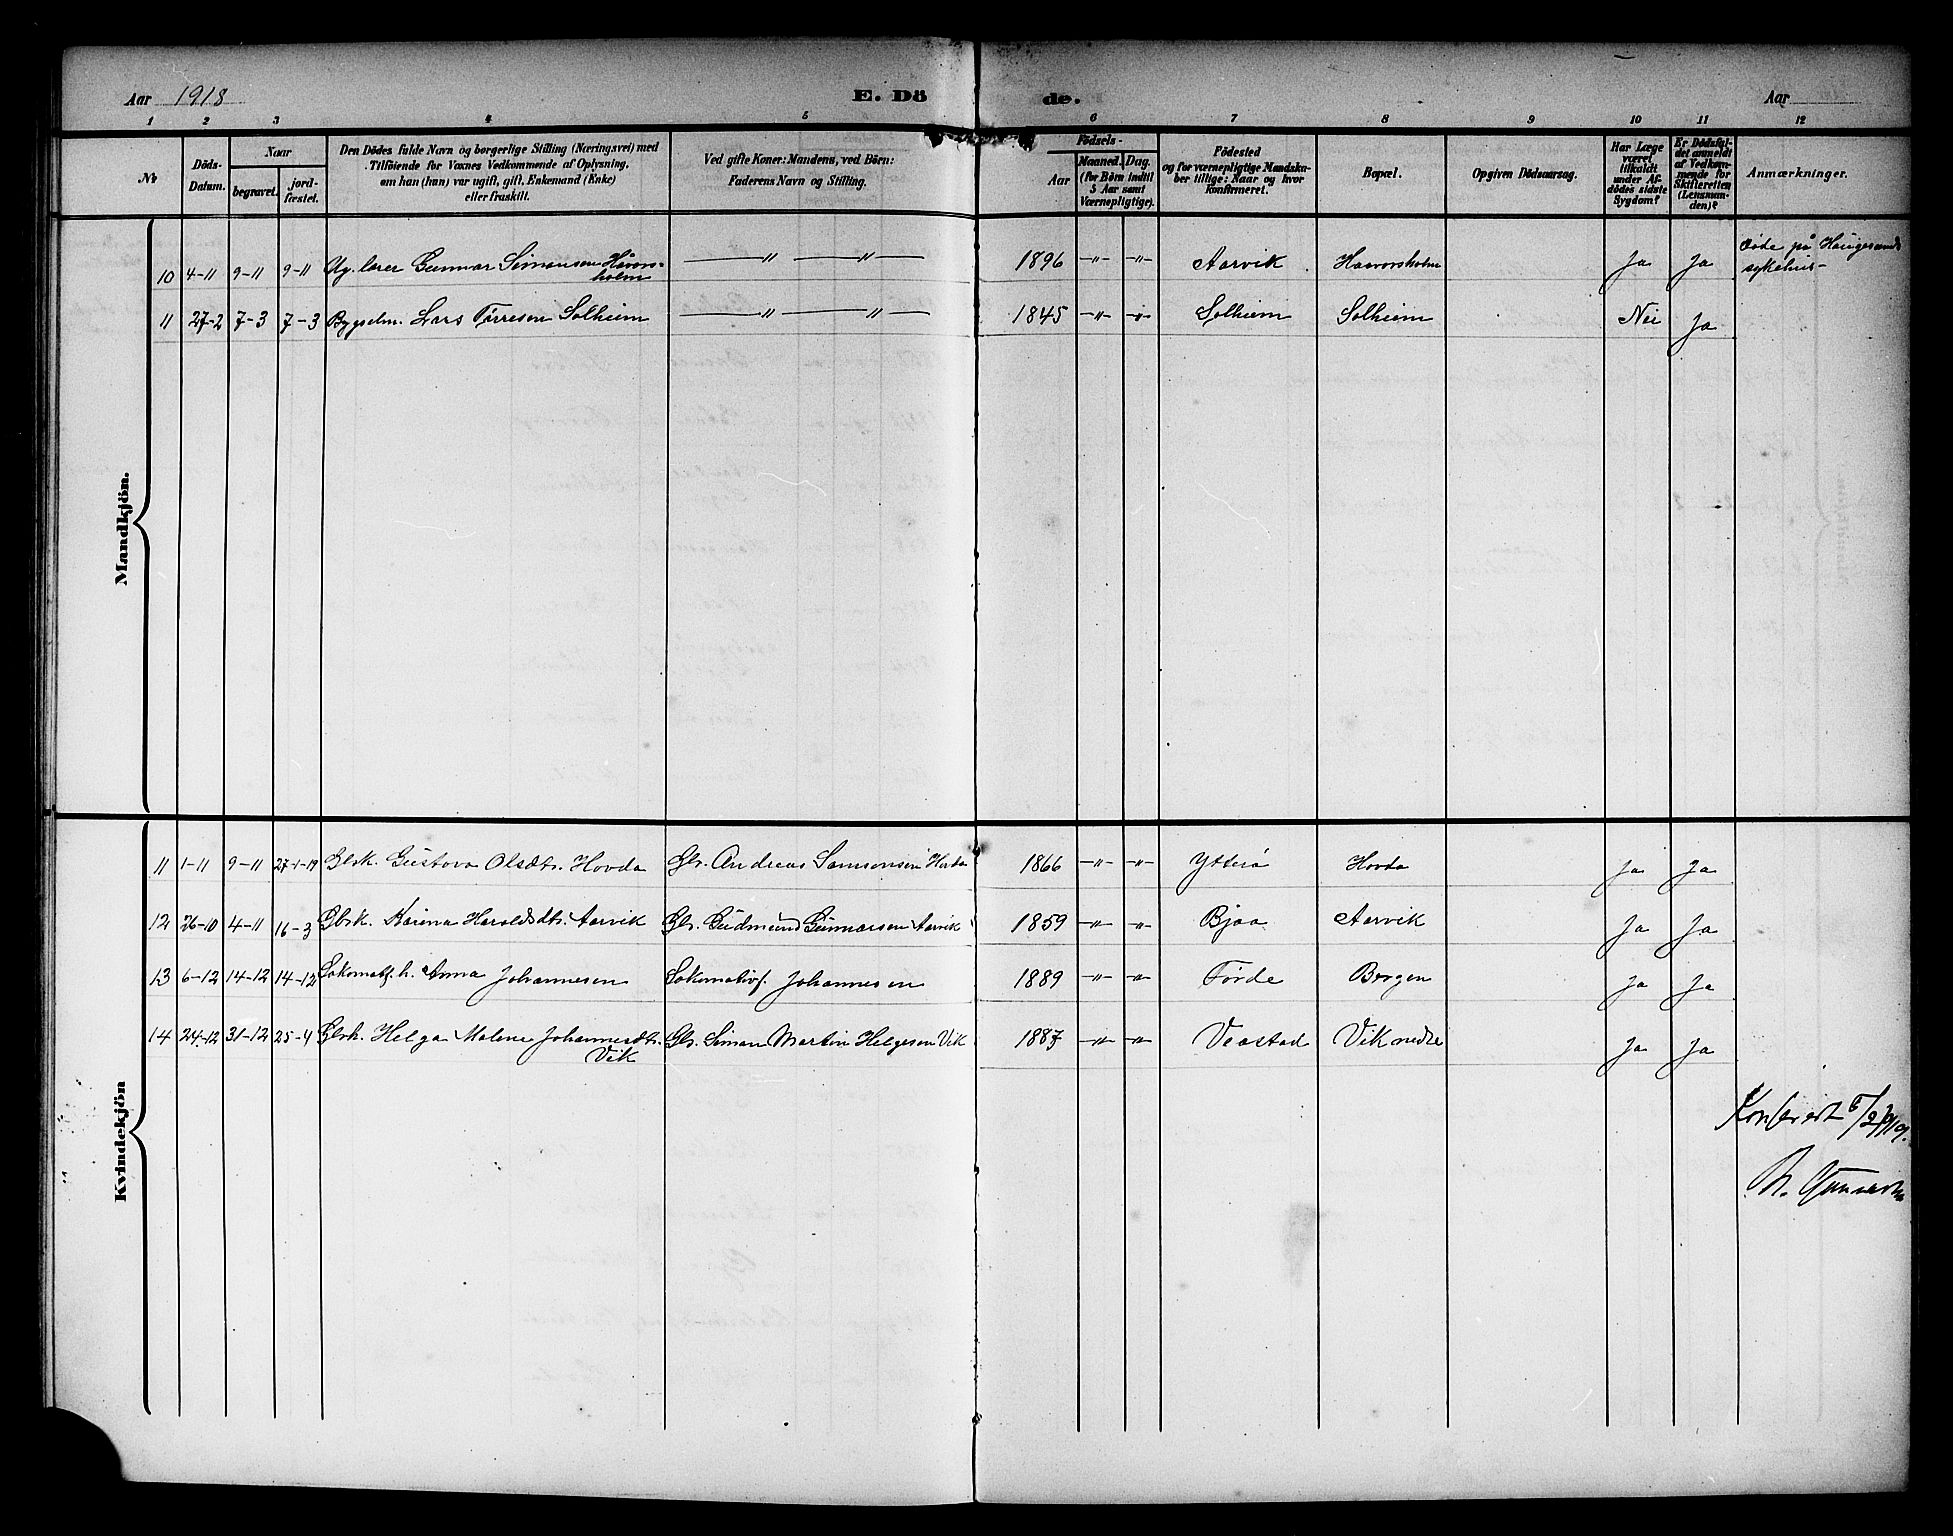 Aar 1918 E. Dö de. Aar
1 2 3 4 5 6 7 8 9 10 11 12
No
Döds-Datum.
Naar
begravet.
jord-fæstet.
Den Dödes fulde Navn og borgerlige Stilling (Næringsvei) med
Tilföiende for Voxnes Vedkommende af Oplysning,
om han (hun) var ugift, gift, Enkemand (Enke)
eller fraskilt.
Ved gifte Koner: Mandens, ved Börn:
Faderens Navn og Stilling.
Födsels-
Aar
Maaned. Dag.
(for Börn indtil
5 Aar samt
Værnepligtige).
Födested
og for værnepligtige Mandska-
ber tillige: Naar og hvor
konfirmeret.
Bopæl.
Opgiven Dödsaarsag.
Har Læge
været
tilkaldt
under Af-
dödes sidste
Sygdom?
Er Dödsfal-
det anmeldt
af Vedkom-
mende for
Skifteretten
(Lensman-
den)?
Anmærkninger.
Mandkjön.
10 4-11 9-11 9-11 Ag. lærer Gunnar Simonsen Håvors-
holm — " — " — 1896 -"- -"- Aarvik Haavorsholm Ja Ja Døde på Haugesunds
sykehus-
11 27-2 7-3 7-3 Bygselm. Lars Tørresen Solheim — " — " — 1845 -"- -"- Solheim Solheim Nei Ja
Kvindekjön
11 1-11 9-11 27-1-19 Gbrk. Gustava Olsdtr. Hovda Gbr. Andreas Samsonsen Hovda 1866 -"- -"- Ytterø Hovda Ja Ja
12 26-10 4-11 16-3 Gbrk. Karina Haroldsdtr. Aarvik Gbr. Gudmund Gunnarsen Aarvik 1859 -"- -"- Bjoa Aarvik Ja Ja
13 6-12 14-12 14-12 Lokomotf. h. Anna Johannesen Lokomotivf. Johannesen 1889 -"- -"- Førde Bergen Ja Ja
14 24-12 31-12 25-4 Gbrk. Helga Malene Johannesdtr.
Vik Gbr. Simon Martin Helgesen Vik 1887 -"- -"- Veastad Vik nedre Ja Ja
Konferert 5/2 1919.